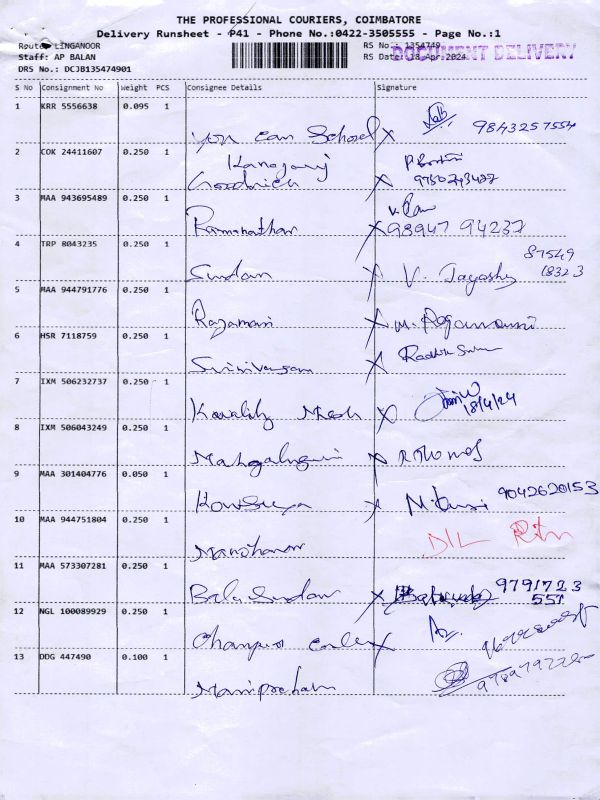 THE PROFESSIONAL COURIERS, COIMBATORE
Delivery Runsheet - P41 - Phone No.:0422-3505555 - Page No.:1
Route: LINGANOOR RS No.: 1354749
Staff: AP BALAN RS Date: 18 Apr 2024 DOCUMENT DELIVERY
DRS No.: DCJB135474901
S No Consignment No Weight PCS Consignee Details Signature
1 KRR 5556638 0.095 1
You Can School X 9843257554
2 COK 24411607 0.250 1 Kanagaraj
Goodrich X 9750243427
3 MAA 943695489 0.250 1
Ramanathan X 98947 94237
4 TRP 8043235 0.250 1 87549
Sundar X V. Jayashy 18323
5 MAA 944791776 0.250 1
Rajamani X M. Rajamani
6 HSR 7118759 0.250 1
Srinivasan X Radha
7 IXM 506232737 0.250 1
X 18/4/24
8 IXM 506043249 0.250 1
X
9 MAA 301404776 0.050 1
Kowsulya X 9042620153
10 MAA 944751804 0.250 1
Manoharan D/L Rtn
11 MAA 573307281 0.250 1
Bala Sundar X 9791723
557
12 NGL 100089929 0.250 1
X
13 DDG 447490 0.100 1